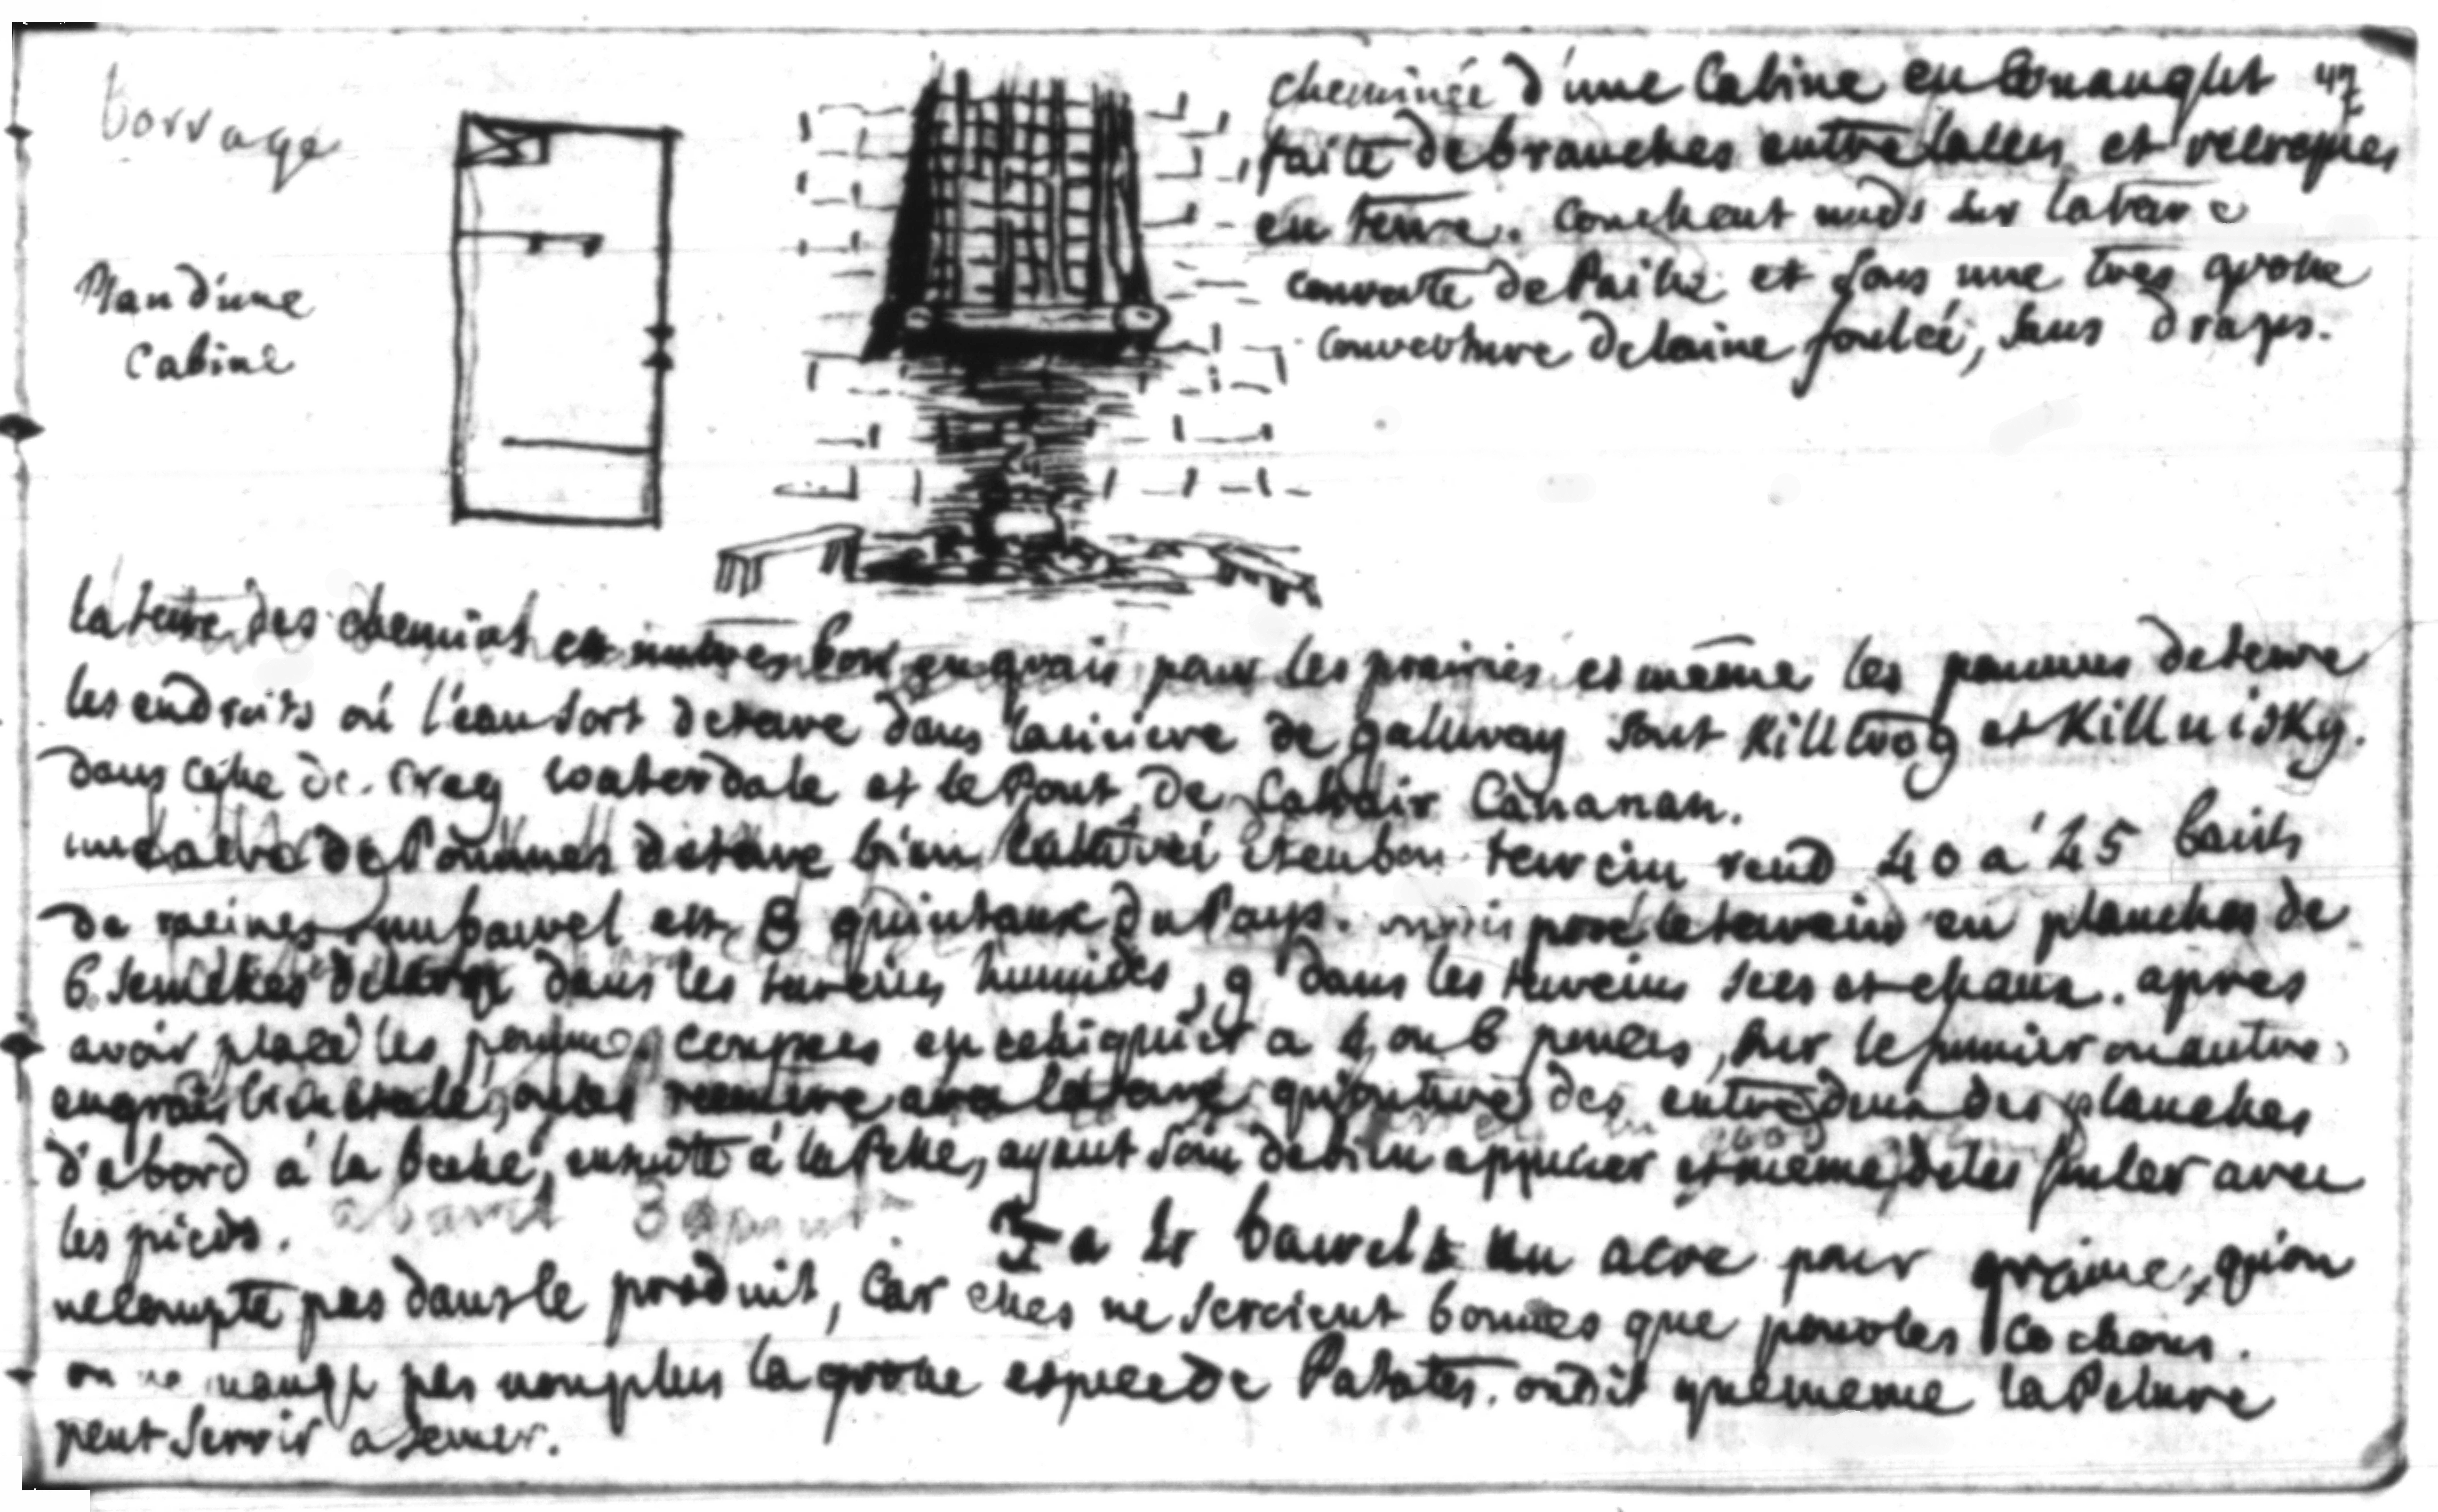 borrage
Plan d'une
Cabine
cheminée d'une Cabine en Conaught 47
faite de branches entrelacées et
en terre. couchent nuds sur la terre
couverte de Paille et sous une tres grosse
couverture de laine foulée, sans draps.
la terre des chemins est un tres bon engrais pour les prairies et même les pommes de terre
les endroits où l'eau sort de terre dans la riviere de gallway sont Killtrog et Killnisky.
dans celle de Creg Waterdale et le Pont de Cahair Cananan.
une acre de Pommes de terre bien cultivé et en bon terrein rend 40 a 45 barils
de racines un bariel est 8 quintaux du Pays. le terrein en planches de
6 semelles de large dans les terreins humides, 9 dans les terreins secs et chaux. apres
avoir placé les pommes coupees en echiquier a 4 ou 6 pouces, sur le fumier ou autre
engrais on les avec la terre qu'on tire des entre deux des planches
d'abord à la beche, ensuite à la Pelle, ayant soin de bien appuier et même de les fouler avec
les pieds. 3 a 4 barrels un acre pour graine, qu'on
ne compte pas dans le produit, car elles ne seroient bonnes que pour les cochons.
on ne mange pas non plus la grosse espece de Patates. on dit que meme la Pelure
peut servir a semer.